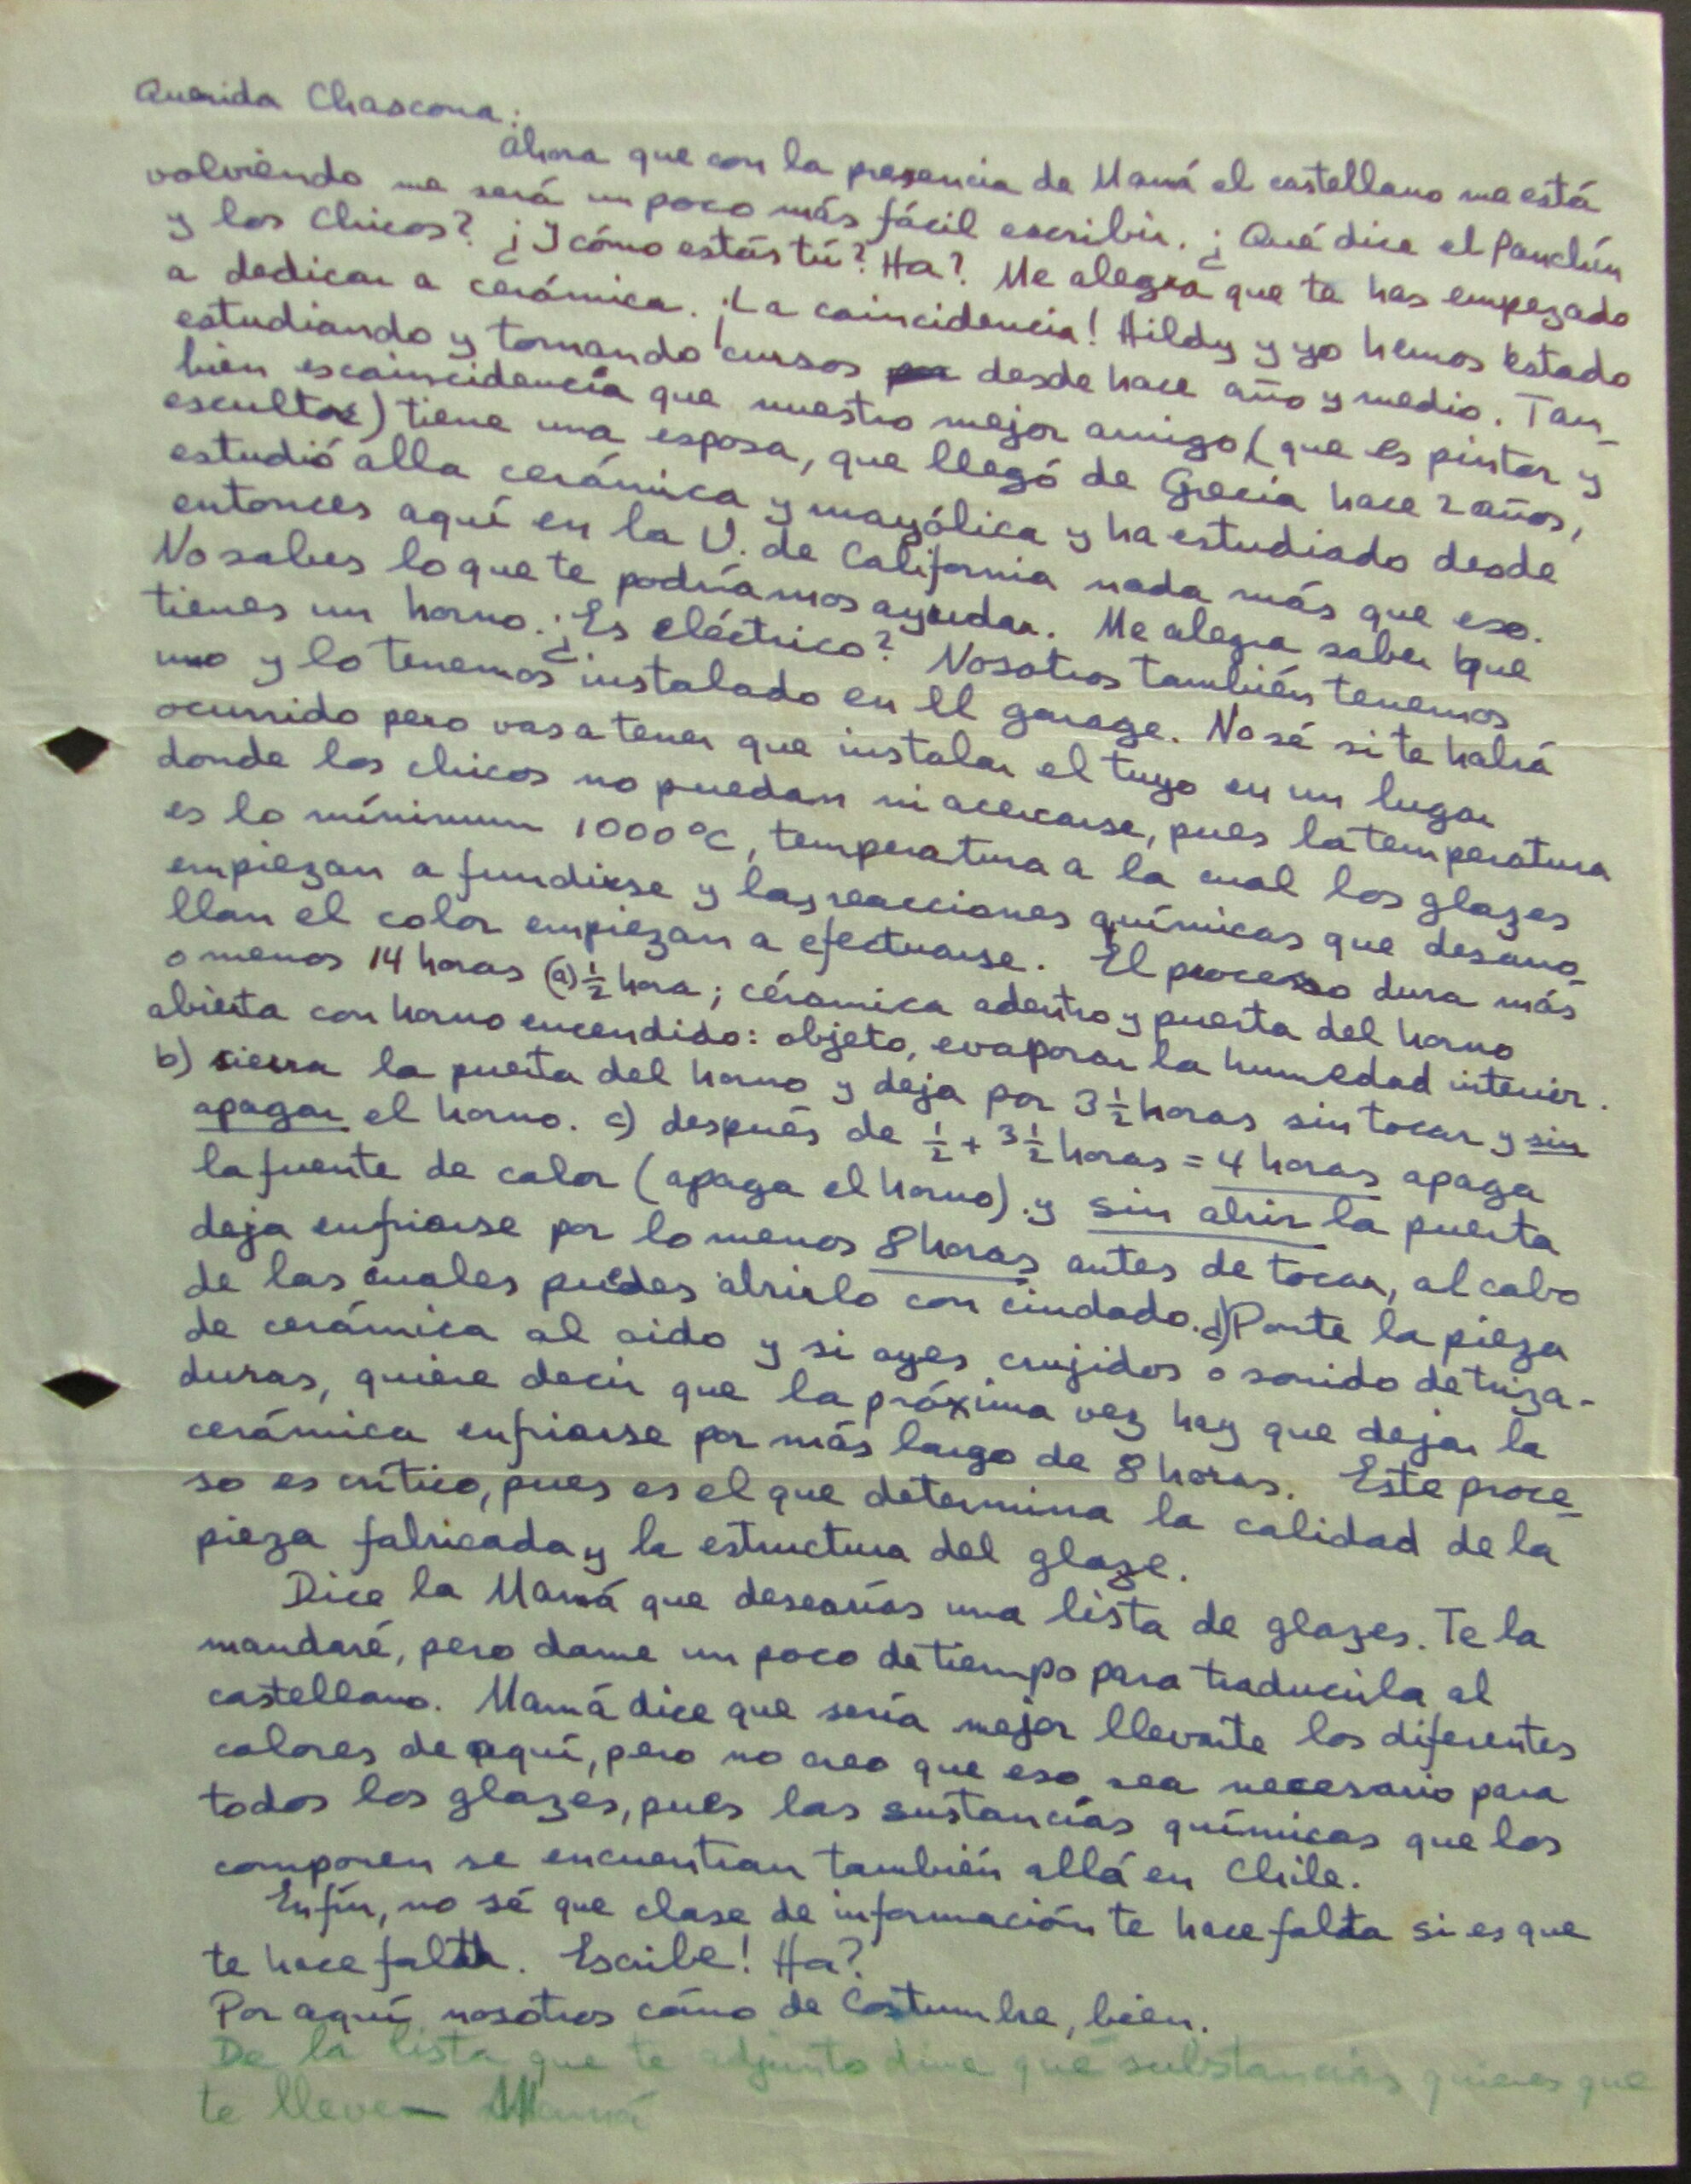 Querida Chascona:
Ahora que con la presencia de Mamá el castellano me está
volviendo me será un poco más fácil escribir. ¿Qué dice el Panchín
y los chicos? ¿Y cómo estás tú? Ha? Me alegra que te has empezado
a dedicar a cerámica. ¡La coincidencia! Hildy y yo hemos estado
estudiando y tomando cursos desde hace año y medio. Tam-
bien es coincidencia que nuestro mejor amigo (que es pintor y
escultor) tiene una esposa, que llegó de Grecia hace 2 años,
estudió alla cerámica y mayólica y ha estudiado desde
entonces aquí en la U. de California nada más que eso.
No sabes lo que te podríamos ayudar. Me alegra saber que
tienes un horno. ¿Es eléctrico? Nosotros también tenemos
uno y lo tenemos instalado en el garage. No sé si te habrá
ocurrido pero vas a tener que instalar el tuyo en un lugar
donde los chicos no puedan ni acercarse, pues la temperatura
es lo mínimum 1000°C, temperatura a la cual los glazes
empiezan a fundirse y las reacciones químicas que desarro-
llan el color empiezan a efectuarse. El processo dura más
o menos 14 horas (a) ½ hora; cérámica adentro y puerta del horno
abierta con horno encendido: objeto, evaporar la humedad interior.
b) sierra la puerta del horno y deja por 3½ horas sin tocar y sin
apagar el horno. c) después de ½ + 3½ horas = 4 horas apaga
la fuente de calor (apaga el horno). y sin abrir la puerta
deja enfriarse por lo menos 8 horas antes de tocar, al cabo
de las cuales puedes abrirlo con ciudado. d) Ponte la pieza
de cerámica al oido y si oyes crujidos o sonido de triza-
duras, quiere decir que la próxima vez hay que dejar la
cerámica enfriarse por más largo de 8 horas. Este proce-
so es crítico, pues es el que determina la calidad de la
pieza fabricada y la estructura del glaze.
Dice la Mamá que desearías una lista de glazes. Te la
mandaré, pero dame un poco de tiempo para traducirla al
castellano. Mamá dice que sería mejor llevarte los diferentes
colores de aquí, pero no creo que eso sea necesario para
todos los glazes, pues las sustancías químicas que los
componen se encuentran también allá en Chile.
Enfin, no sé que clase de información te hace falta si es que
te hace falta. Escribe! Ha?
Por aquí nosotros cómo de Costumbre, bien.
De la lista que te adjunto dime qué substancias quieres que
te lleve — Mamá